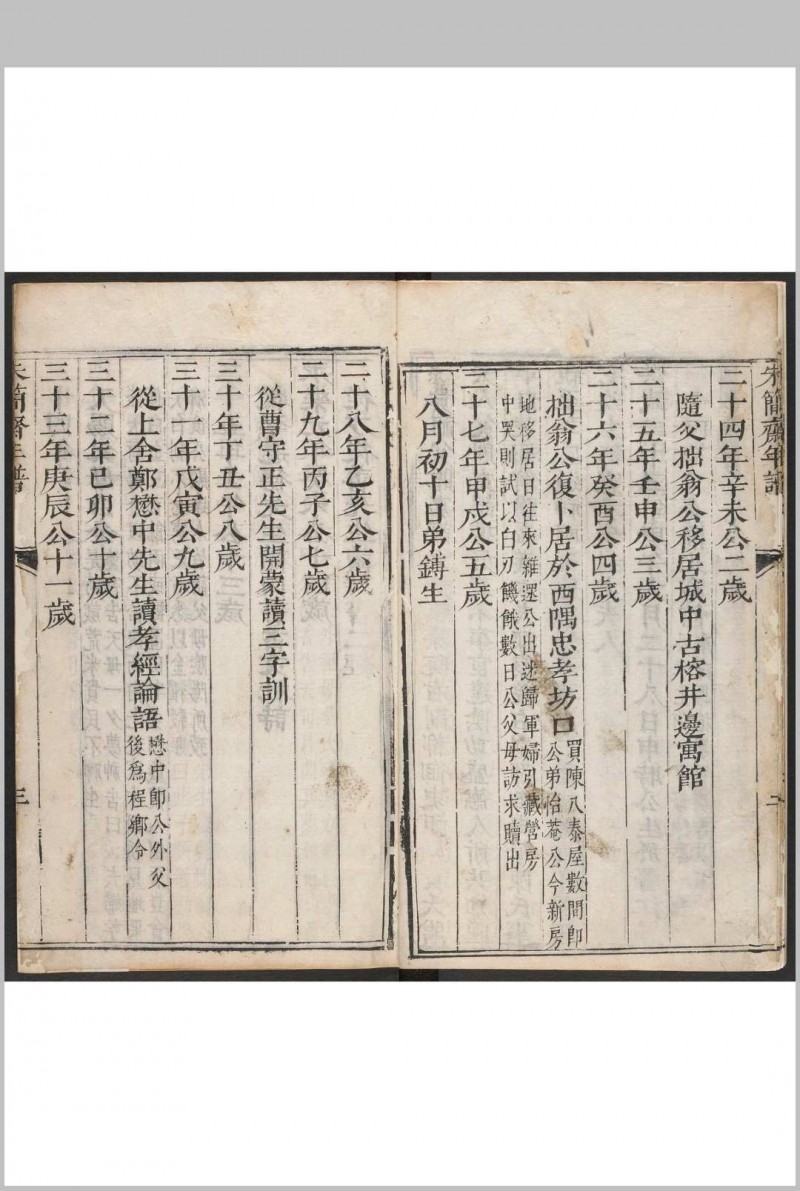 朱簡齋年譜
二
二十四年辛未公二歲
隨父拙翁公移居城中古榕井邊寓館
二十五年壬申公三歲
二十六年癸酉公四歲
拙翁公復卜居於西隅忠孝坊口
買陳八泰屋數間即
公弟怡菴公今新房
地移居日往來雜遝公出迷歸軍婦引藏營房
中哭則試以白刃饑餓數日公父母訪求贖出
二十七年甲戌公五歲
八月初十日弟鎛生
二十八年乙亥公六歲
二十九年丙子公七歲
從曹守正先生開蒙讀三字訓
三十年丁丑公八歲
三十一年戊寅公九歲
從上舍鄭懋中先生讀孝經論語
懋中即公外父
後為程鄉令
三十二年已卯公十歲
三十三年庚辰公十一歲
朱簡齋年譜
三